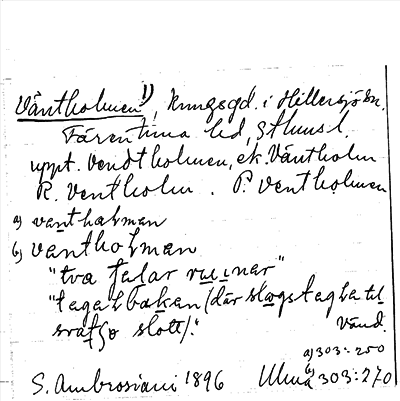 Väntholmen 1), kungsgd. i Hillersjöbn.
Färentuna hd, Sthmsl.
uppt. Vendtholmen, ek. Väntholm
R. Ventholm. P. Ventholmen
a) vantholman
b) vantholman
"tva falar ruinar"
"tegelbakan (där slogs tagla til
slott)."
Vänd.
a) 303: 250
S. Ambrosiani 1896 Ulma b) 303: 270